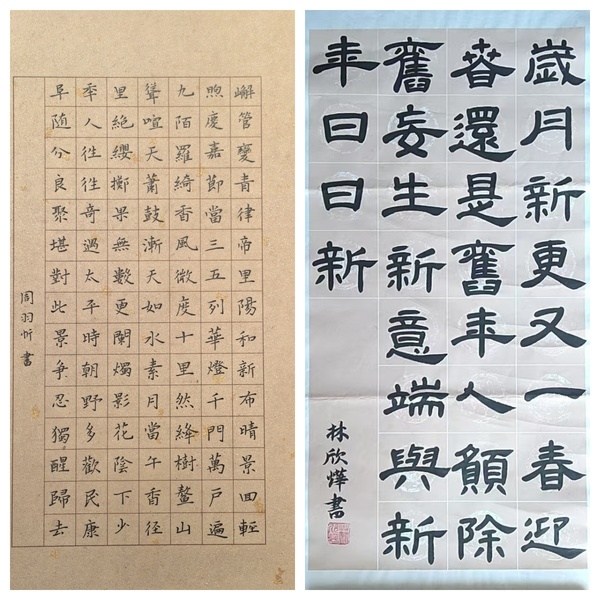 嶰管變青律帝里陽和新布晴景回輕
煦慶嘉節當三五列華燈千門萬戶遍
九陌羅綺香風微度十里然絳樹鰲山
聳喧天蕭鼓漸天如水素月當午香徑
里絕纓擲果無數更闌燭影花陰下少
年人往往奇遇太平時朝野多歡民康
阜随分良聚堪對此景爭忍獨醒歸去
周羽忻書
歲月新更又一春迎
春還是舊年人願除
舊妄生新意端與新
年日日新
林欣燁書